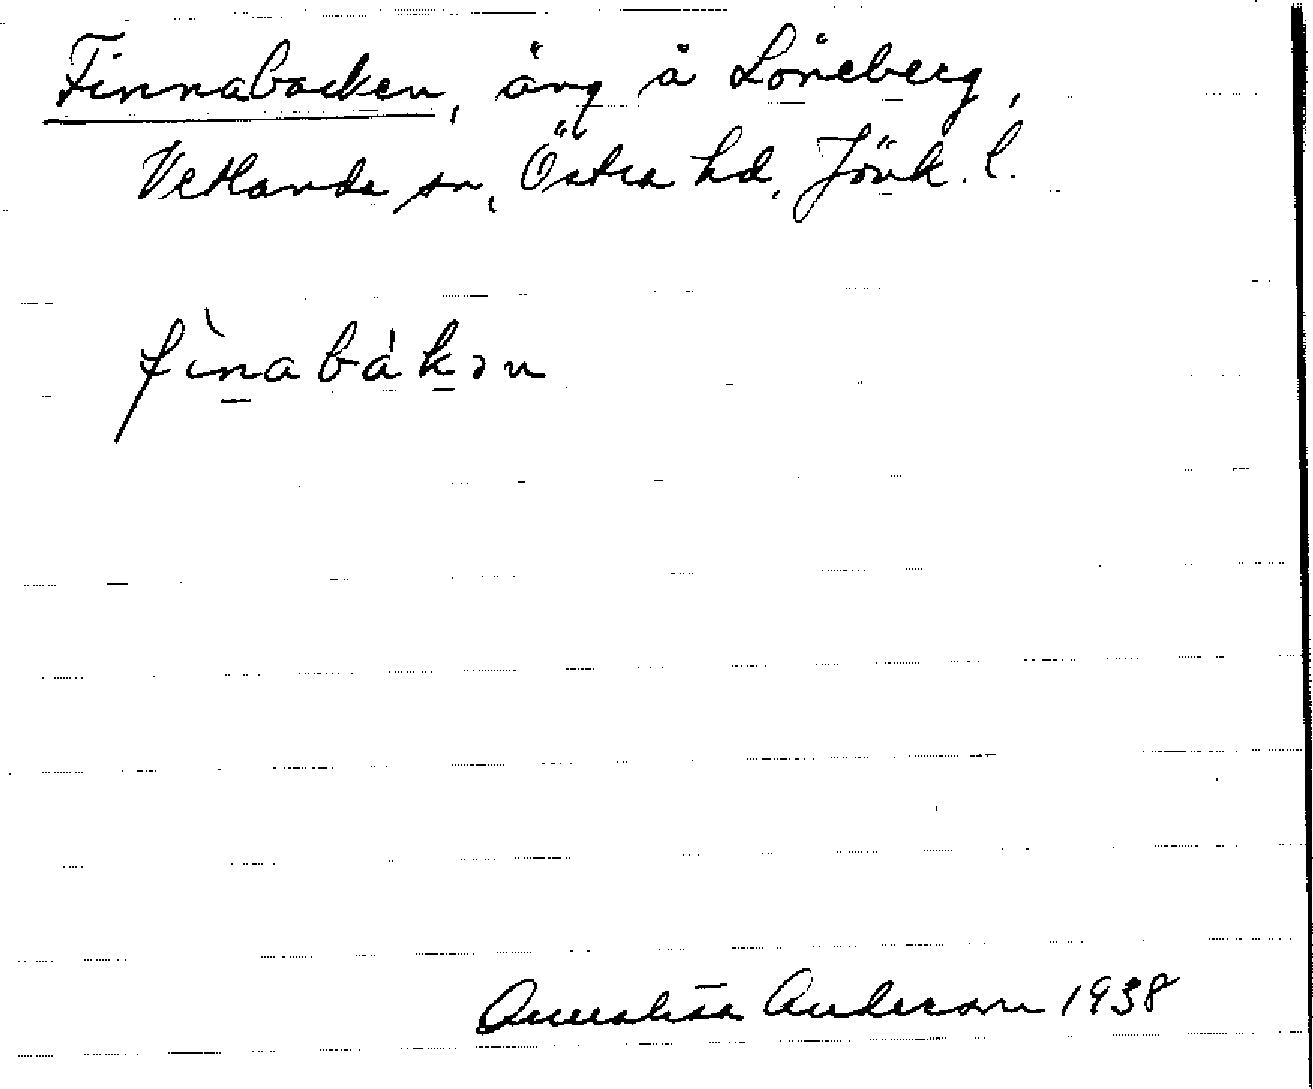 Finnabacken, äng å Löneberg,
Vetlanda sn, Östra hd, Jönk. l.
fìn̲abák̲ən
Annalisa Anderson 1938